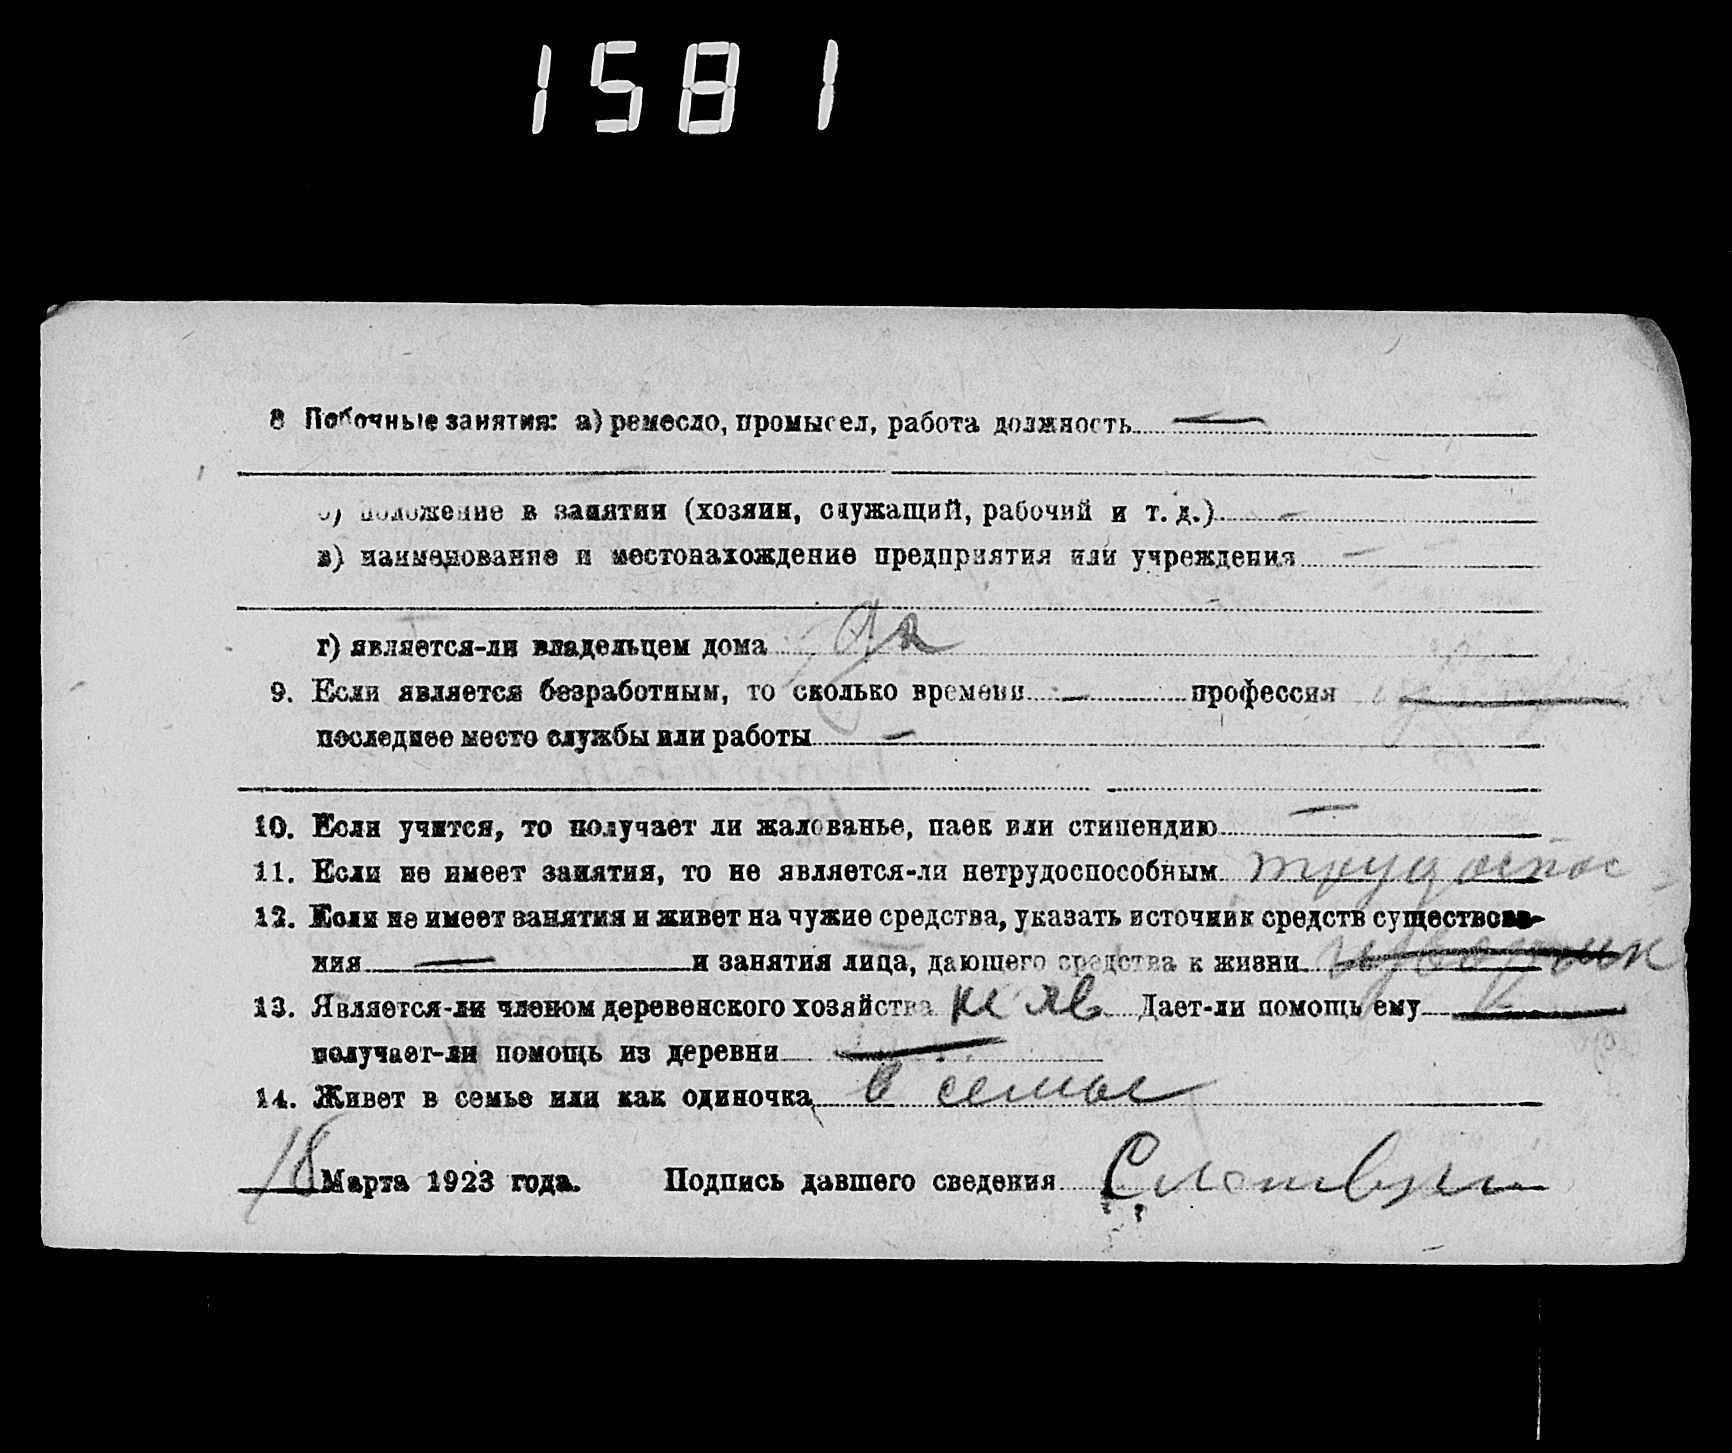 1581
8 Побочные занятия: а) ремесло, промысел, работа должность —
б) положение в занятии (хозяин, служащий, рабочий и т. д.) —
в) наименование и местонахождение предприятия или учреждения —
г) является-ли владельцем дома да
9. Если является безработным, то сколько времени — профессия —
последнее место службы или работы —
10. Если учится, то получает ли жалованье, паек или стипендию —
11. Если не имеет занятия, то не является-ли нетрудоспособным трудоспос
12. Если не имеет занятия и живет на чужие средства, указать источник средств существова-
ния — и занятия лица, дающего средства к жизни
13. Является-ли членом деревенского хозяйства не яв. Дает-ли помощь ему —
получает-ли помощь из деревни —
14. Живет в семье или как одиночка в семье
18 Марта 1923 года. Подпись давшего сведения